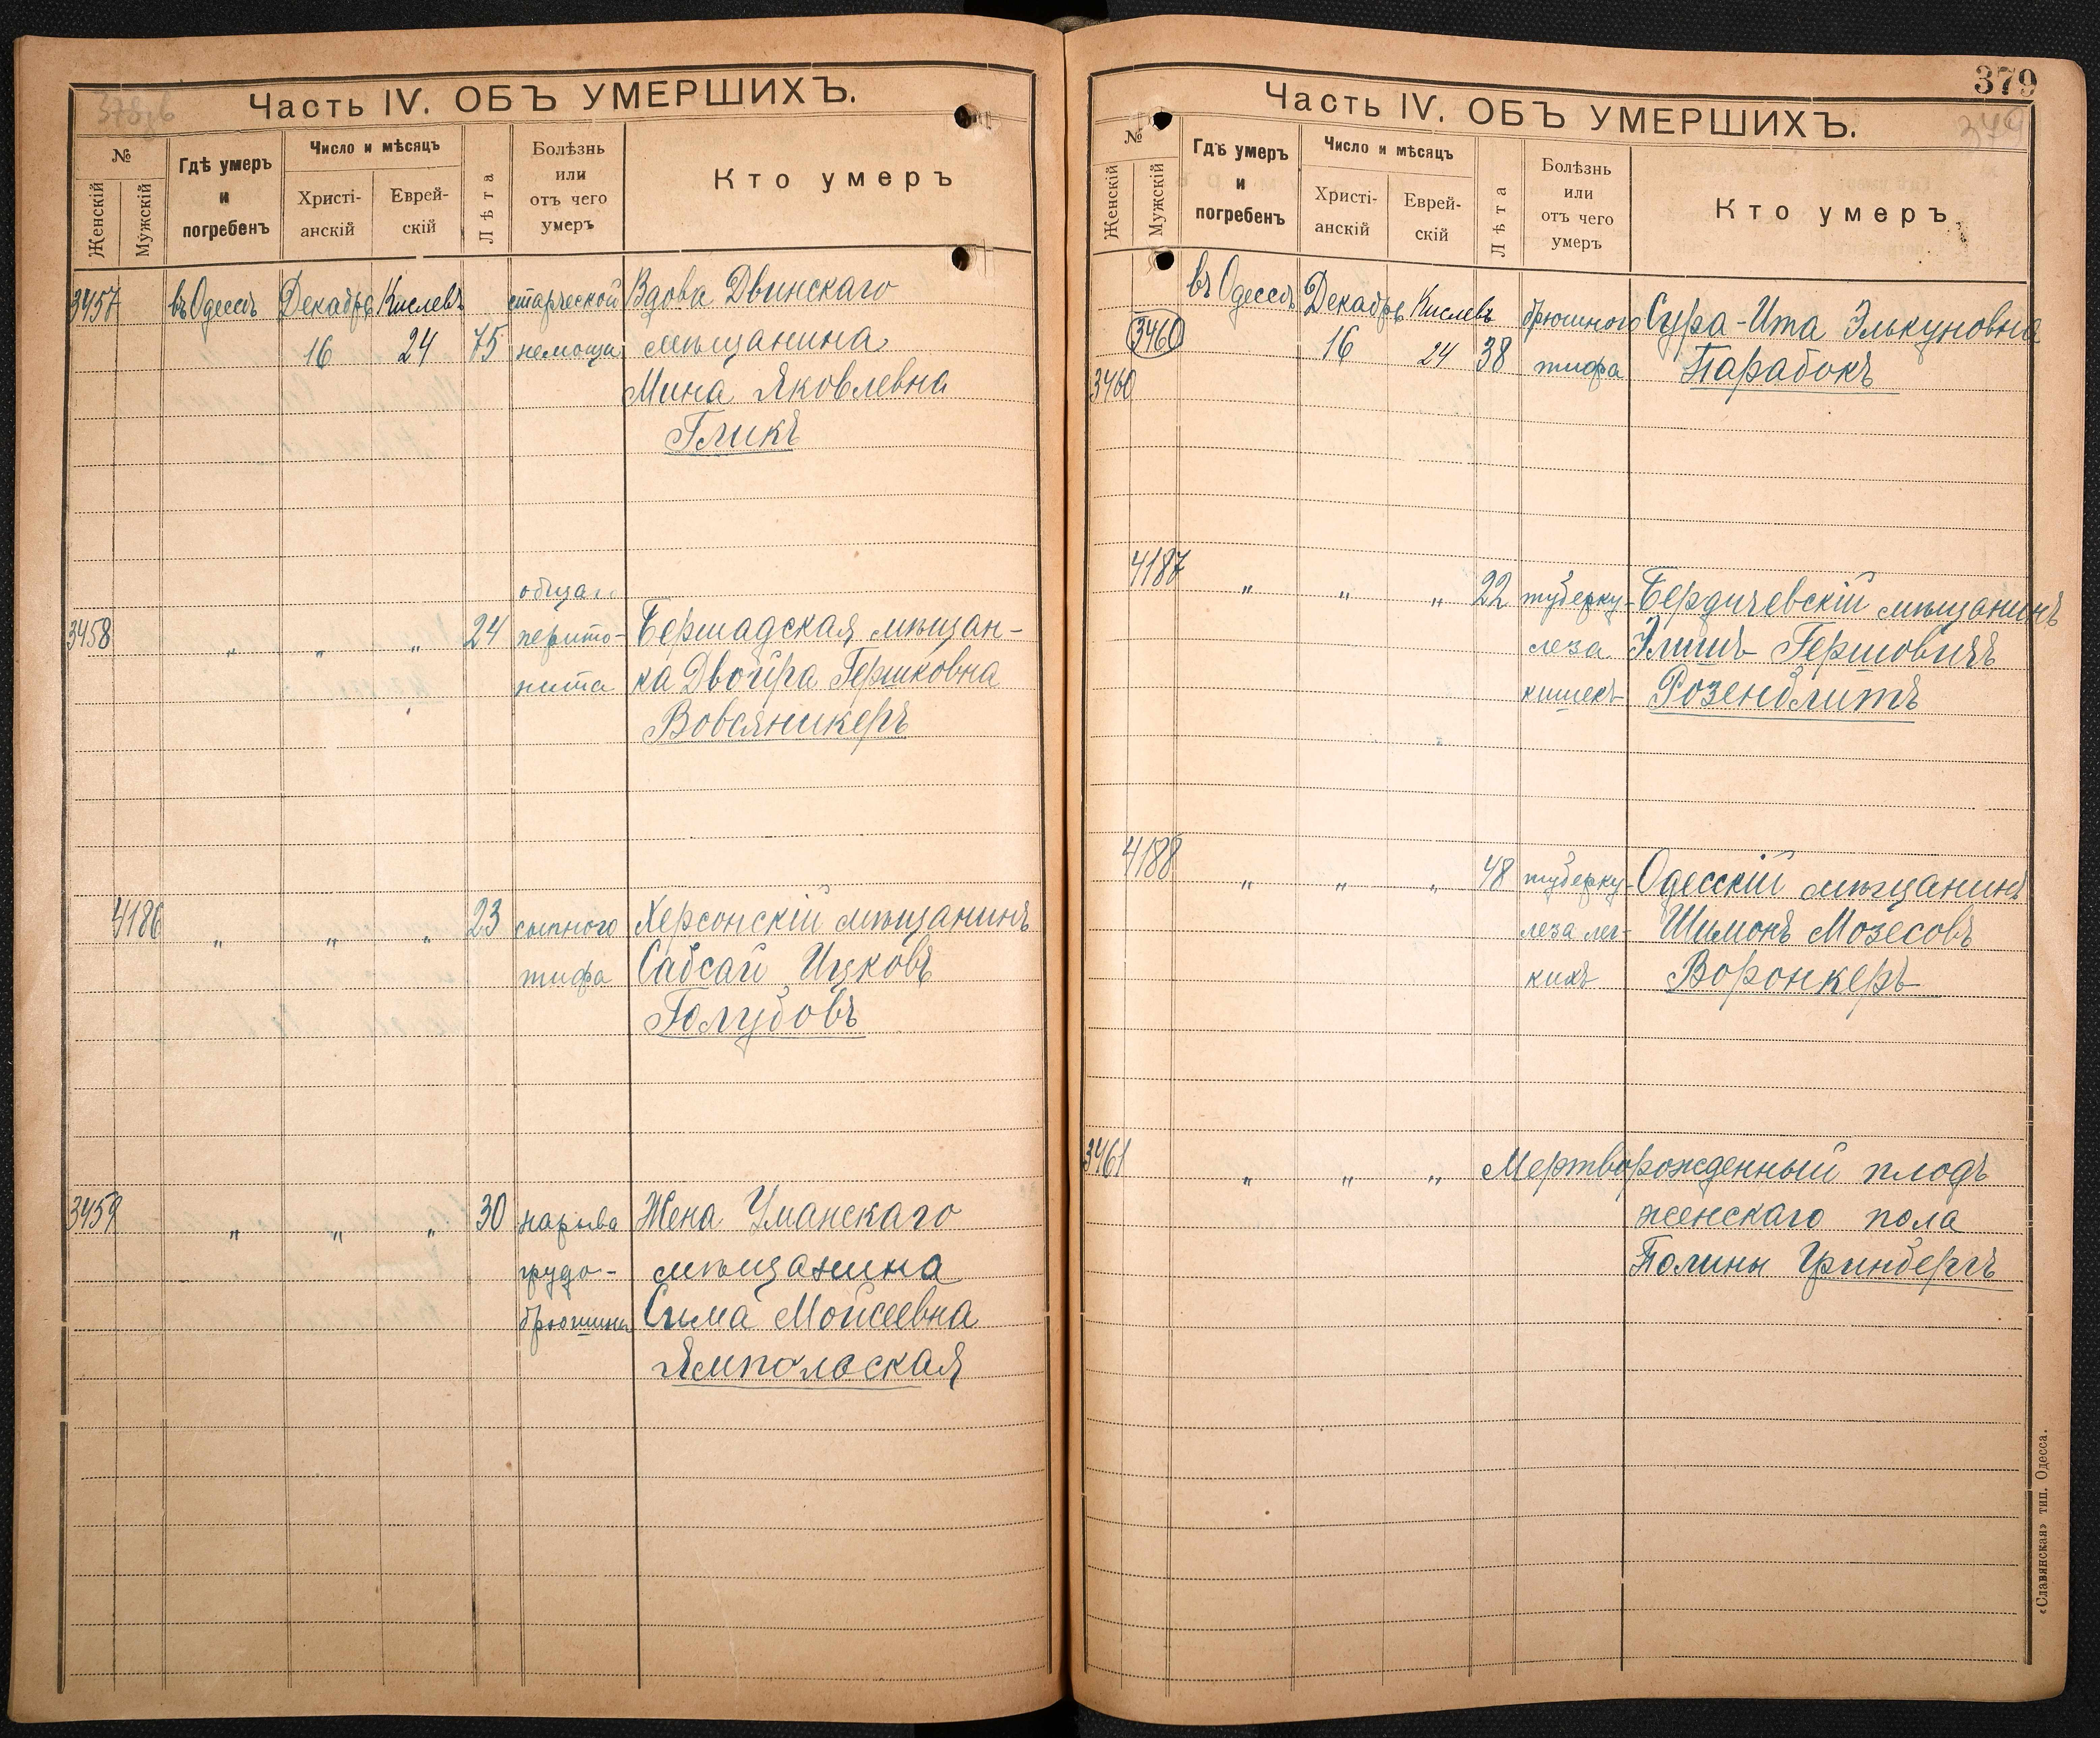 378об
Часть IV. ОБЪ УМЕРШИХЪ.
№
Женскій
Мужскій
Гдѣ умеръ
и
погребенъ
Число и мѣсяцъ
Христі-
анскій
Еврей-
скій
Лѣта
Болѣзнь
или
отъ чего
умеръ
Кто умеръ
3457 въ Одессѣ Декабрь Кислевъ старческой Вдова Двинскаго
16 24 75 немощи мѣщанина
Мина Яковлевна
Гликъ
общаго
3458 " " " 24 перито- Бершадская мѣщан-
нита ка Двойра Гершковна
Вовсяникеръ
4186 " " " 23 сыпного Херсонскій мѣщанинъ
тифа Сабсай Ицковъ
Голубовъ
3459 " " " 30 нарыва Жена Уманскаго
грудо- мѣщанина
брюшины Сима Мойсеевна
Ямпольская
379
379
Часть IV. ОБЪ УМЕРШИХЪ.
№
Женскій
Мужскій
Гдѣ умеръ
и
погребенъ
Число и мѣсяцъ
Христі-
анскій
Еврей-
скій
Лѣта
Болѣзнь
или
отъ чего
умеръ
Кто умеръ
въ Одессѣ Декабрь Кислевъ брюшного Сура-Ита Элькуновна
3460 16 24 38 тифа Парабокъ
3460
4187 " " " 22 туберку- Бердичевскій мѣщанинъ
леза Эльишъ Гершовичъ
кишекъ Розенблитъ
4188 " " " 48 туберку- Одесскій мѣщанинъ
леза лег- Шимонъ Мозесовъ
кихъ Воронкеръ
3461 " " " Мертворожденный плодъ
женскаго пола
Полины Гринбергъ
«Славянская» тип. Одесса.